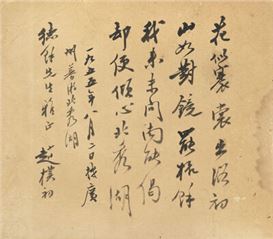 花似褰裳出浴初
山如對鏡罷梳餘
我來未問南能偈
却便傾心北秀湖
一九五五年八月二日 廣
州 游北秀湖
先生雅正
趙樸初